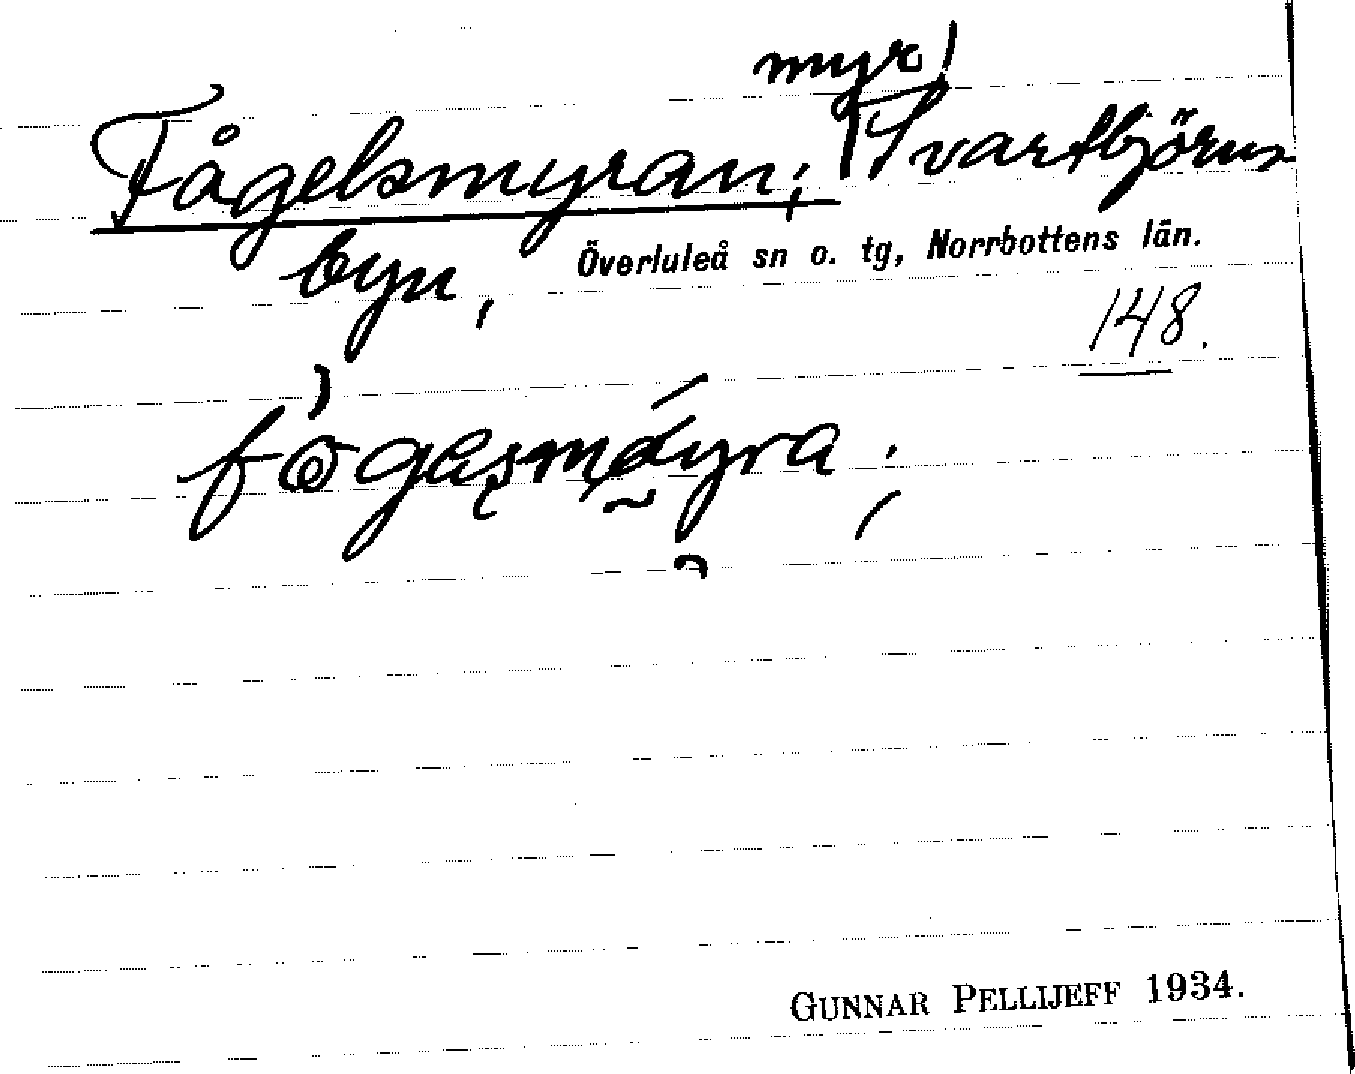 myr)
Fågelsmyran; Svartbjörns-
byn,
Överluleå sn o. tg, Norrbottens län.
148.
GUNNAR PELLIJEFF 1934.